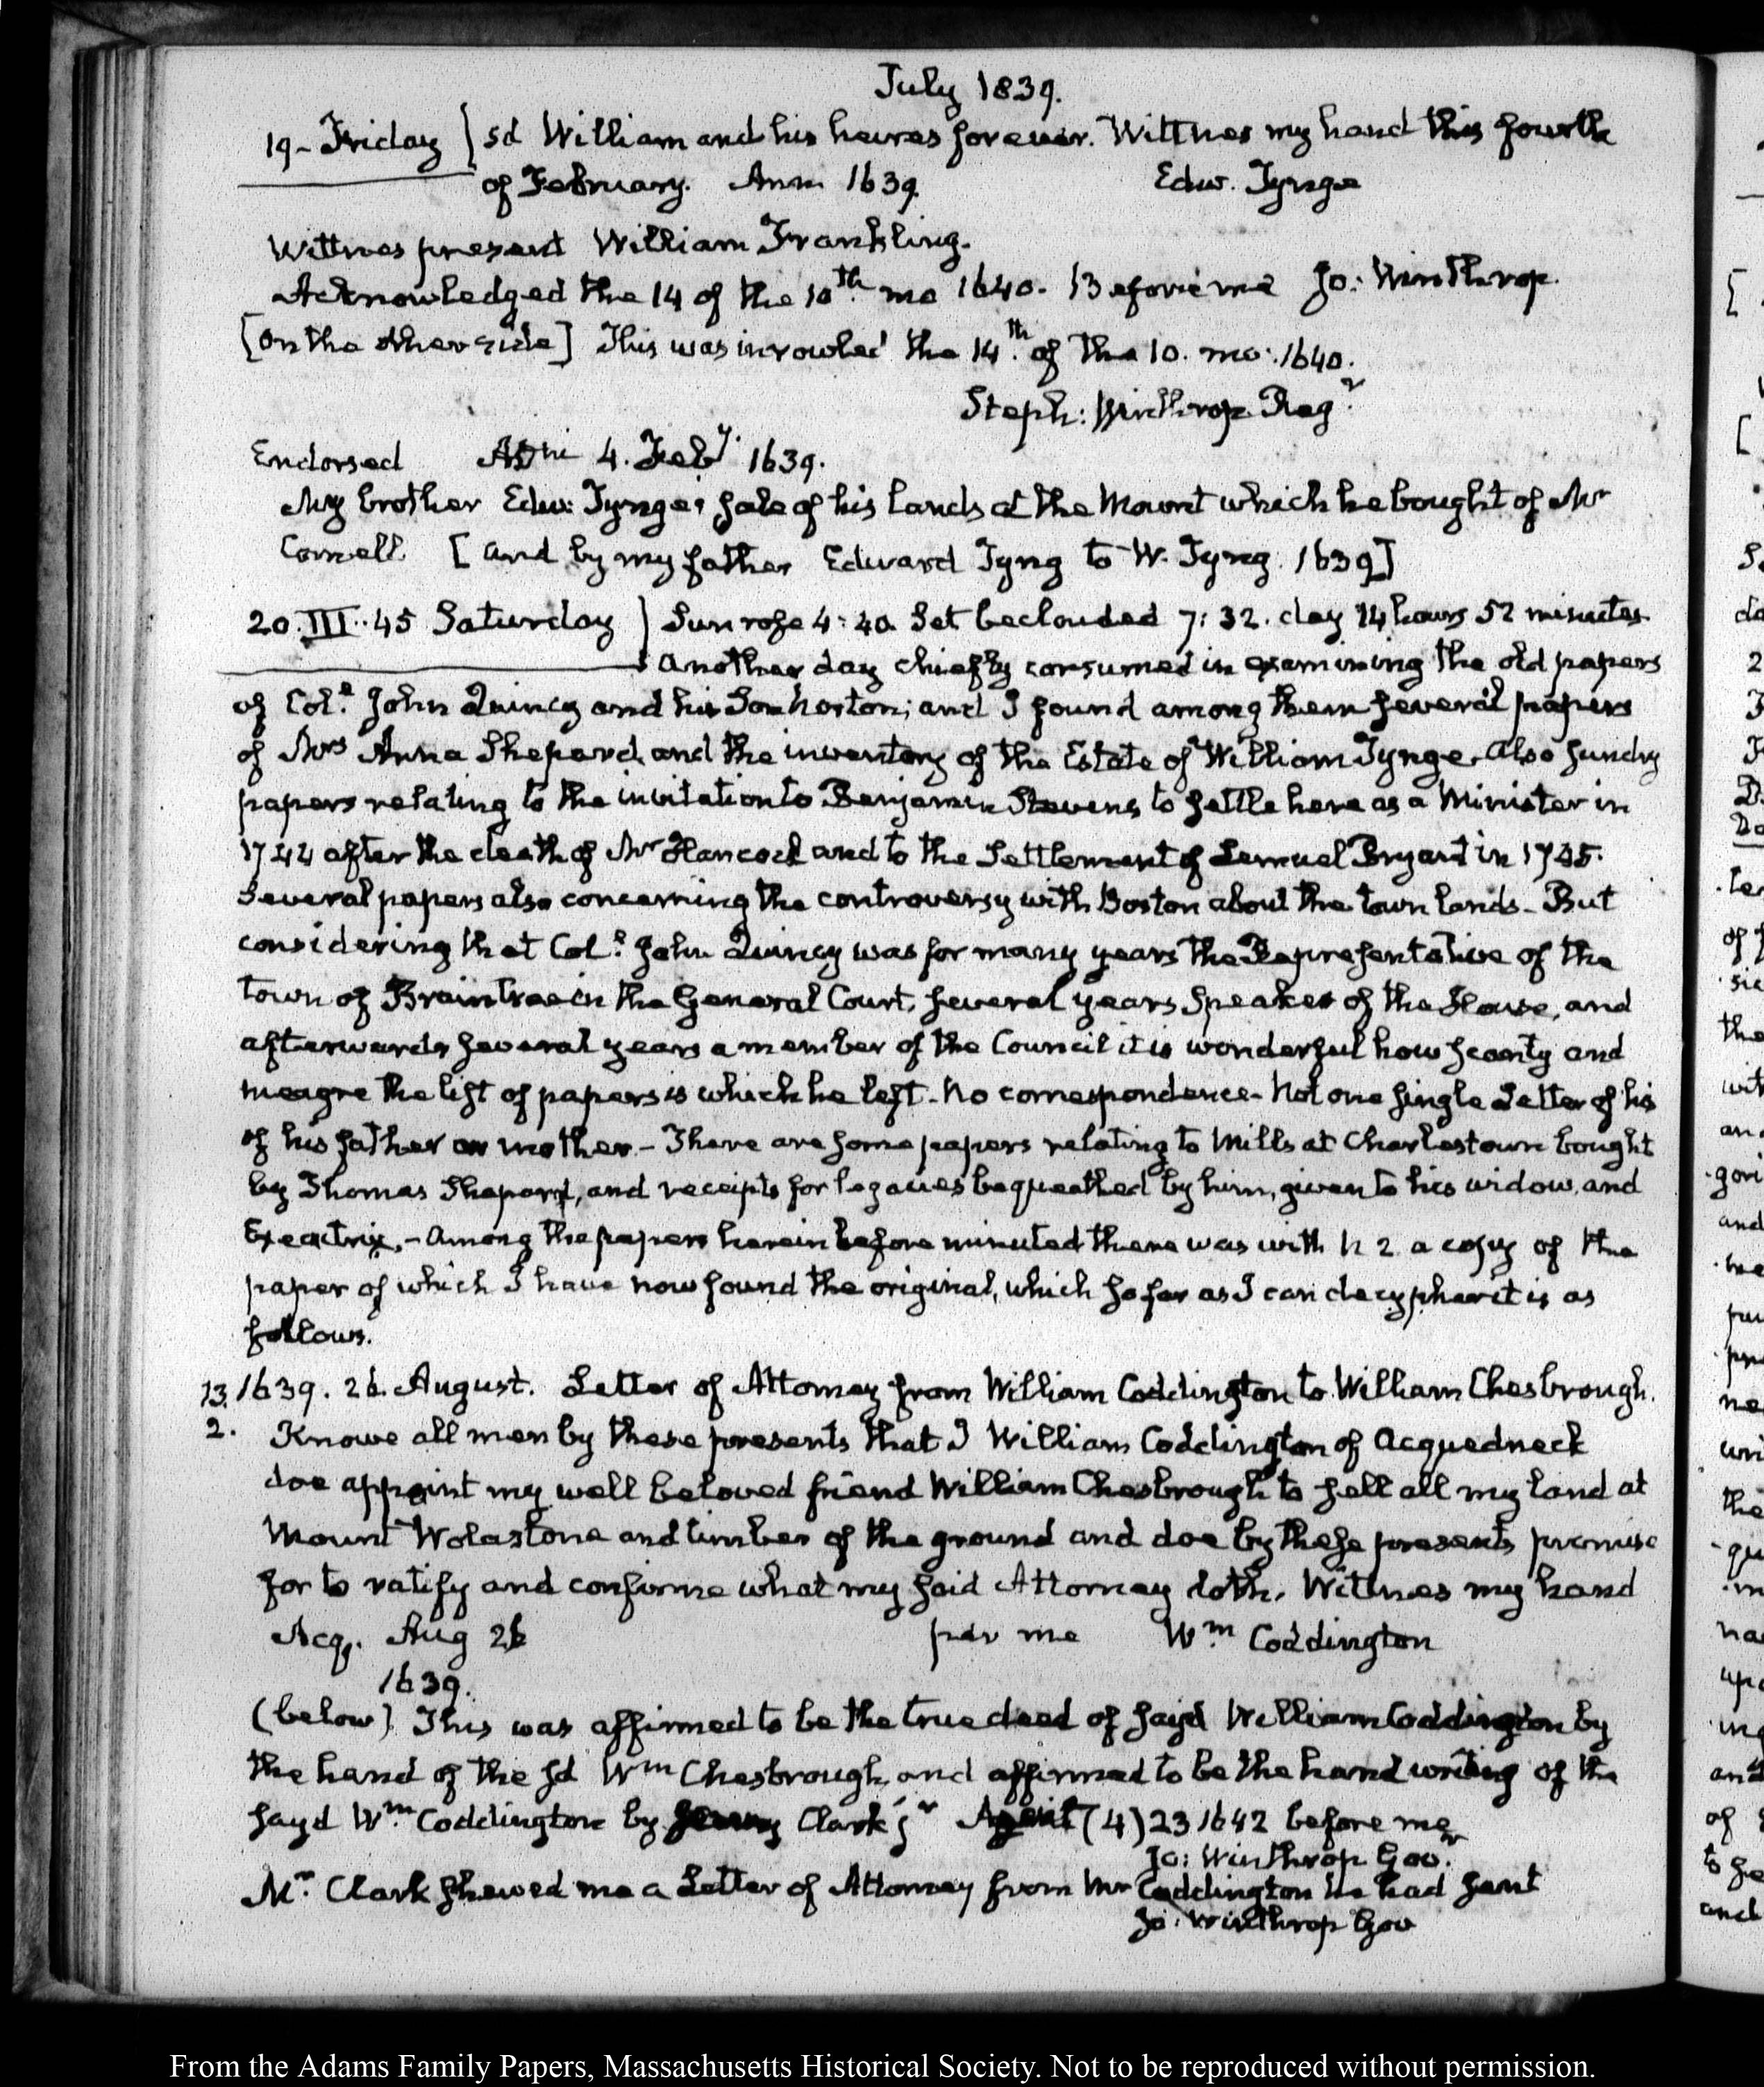 July 1839.
19- Friday } sd William and his heires forever. Wittnes my hand this fourth
of February. Ann. 1639. Edw. Tynge
Wittnes present William Frankling.
Acknowledged the 14 of the 10th mo 1640. Before me Jo: Winthrop.
[on the other side] This was inrowled the 14th of the 10. mo: 1640.
Steph: Winthrop Regr
Endorsed 4. Feby. 1639.
My brother Edw: Tynges sale of his lands at the Mount which he bought of Mr
[and by my father Edward Tyng to W. Tyng. 1639]
20. III. 45 Saturday } Sun rose 4:40. Set beclouded 7:32. day 14 hours 52 minutes.
Another day chiefly consumed in examining the old papers
of Coll John Quincy and his Son Norton; and I found among them several papers
of Mrs Anna Shepard, and the inventory of the Estate of William Tynge. Also sundry
papers relating to the invitation to Benjamin Stevens to settle here as a Minister in
1744 after the death of Mr Hancock and to the Settlement of Lemuel Bryant in 1745.
Several papers also concerning the controversy with Boston about the town lands- But
considering that Coll John Quincy was for many years the Representative of the
town of Braintree in the General Court, several years Speaker of the House, and
afterwards several years a member of the Council it is wonderful how scanty and
meagre the list of papers is which he left- No correspondence- Not one single Letter of his
of his father or mother.- There are some papers relating to Mills at Charlestown bought
by Thomas Shepard, and receipts for legacies bequeathed by him, given to his widow, and
Executrix.- Among the papers herein before minuted there was with N 2 a copy of the
paper of which I have now found the original, which so far as I can decypher it is as
follows.
13. 1639. 26. August. Letter of Attorney from William Coddington to William Chesbrough.
2. Knowe all men by these presents that I William Coddington of Acquedneck
doe appoint my well beloved friend William Chesbrough to sell all my land at
Mount Wolastone and timber of the ground and doe by these presents promise
for to ratify and confirme what my said Attorney doth. Wittnes my hand
Acq. Aug 26 per me Wm Coddington
1639.
(below) This was affirmed to be the true deed of sayd William Coddington by
the hand of the sd Wm Chesbrough and affirmed to be the hand writing of the
sayd Wm Coddington by Clark (4) 23 1642 before me
Jo: Winthrop Gov.
Mr. Clark shewed me a Letter of Attorney from Mr Coddington he had sent
Jo: Winthrop Gov
From the Adams Family Papers, Massachusetts Historical Society. Not to be reproduced without permission.